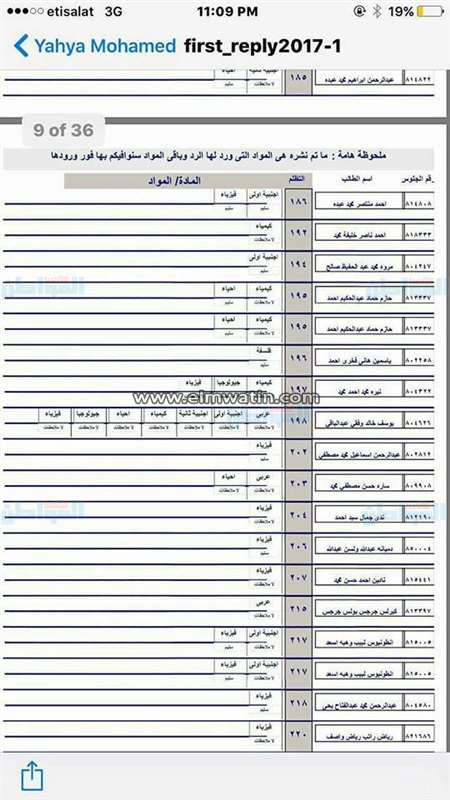 etisalat 3G 11:09 PM 19%
Yahya Mohamed first_reply2017-1
٨١٤٨٢٢ عبدالرحمن ابراهيم محمد عبده ١٨٥
9 of 36
ملحوظة هامة : ما تم نشره هى المواد التى ورد لها الرد وباقى المواد سنوافيكم بها فور ورودها
رقم الجلوس اسم الطالب التظلم المادة/ المواد
٨١٤٨٠٨ احمد منتصر محمد عبده ١٨٦ اجنبية اولى فيزياء
سليم سليم
٨١٨٣٣٣ احمد ناصر خليفة محمد ١٩٢ كيمياء
لا ملاحظات
٨٠٤٢٤٧ مروه محمد عبد الحفيظ صالح ١٩٤ اجنبية اولى
سليم
٨١٣٣٣٧ حازم حماد عبدالحكيم احمد ١٩٥ كيمياء احياء
لا ملاحظات لا ملاحظات
٨١٣٣٣٧ حازم حماد عبدالحكيم احمد ١٩٥ كيمياء احياء
لا ملاحظات لا ملاحظات
٨٠٢٢٥٨ ياسمين هانى فخرى احمد ١٩٦ فلسفة
٨٠٤٣٢٢ نيره محمد احمد محمد ١٩٧ كيمياء جيولوجيا فيزياء
www.elmwatin.com
٨٠٤٦٢٦ يوسف خالد وفقي عبدالباقي ١٩٨ عربى اجنبية اولى اجنبية ثانية كيمياء احياء جيولوجيا فيزياء
لا ملاحظات لا ملاحظات لا ملاحظات لا ملاحظات لا ملاحظات لا ملاحظات لا ملاحظات
٨٠٢٨١٢ عبدالرحمن اسماعيل محمد مصطفي ٢٠٢ فيزياء
٨٠٩٩٠٨ ساره حسن مصطفي محمد ٢٠٣ عربى احياء
لا ملاحظات
٨١٢١٩٠ ندى جمال سيد احمد ٢٠٤ فيزياء
٨٥٠٠٠٤ دميانه عبدالله ولسن عبدالله ٢٠٦ فيزياء
سليم
٨١٥٤٤١ نادين احمد حسن محمد ٢٠٧ فيزياء
لا ملاحظات
٨١٣٣٩٧ كيرلس جرجس بولس جرجس ٢١٥ عربى
لا ملاحظات
٨١٥٠٠٥ انطونيوس لبيب وهبه اسعد ٢١٧ اجنبية اولى فيزياء
لا ملاحظات سليم
٨١٥٠٠٥ انطونيوس لبيب وهبه اسعد ٢١٧ اجنبية اولى فيزياء
لا ملاحظات سليم
٨٠٤٥٨٠ عبدالرحمن محمد عبدالفتاح يحى ٢١٨ فيزياء
٨٢١٦٨٦ رياض راتب رياض واصف ٢٢٠ فيزياء
لا ملاحظات